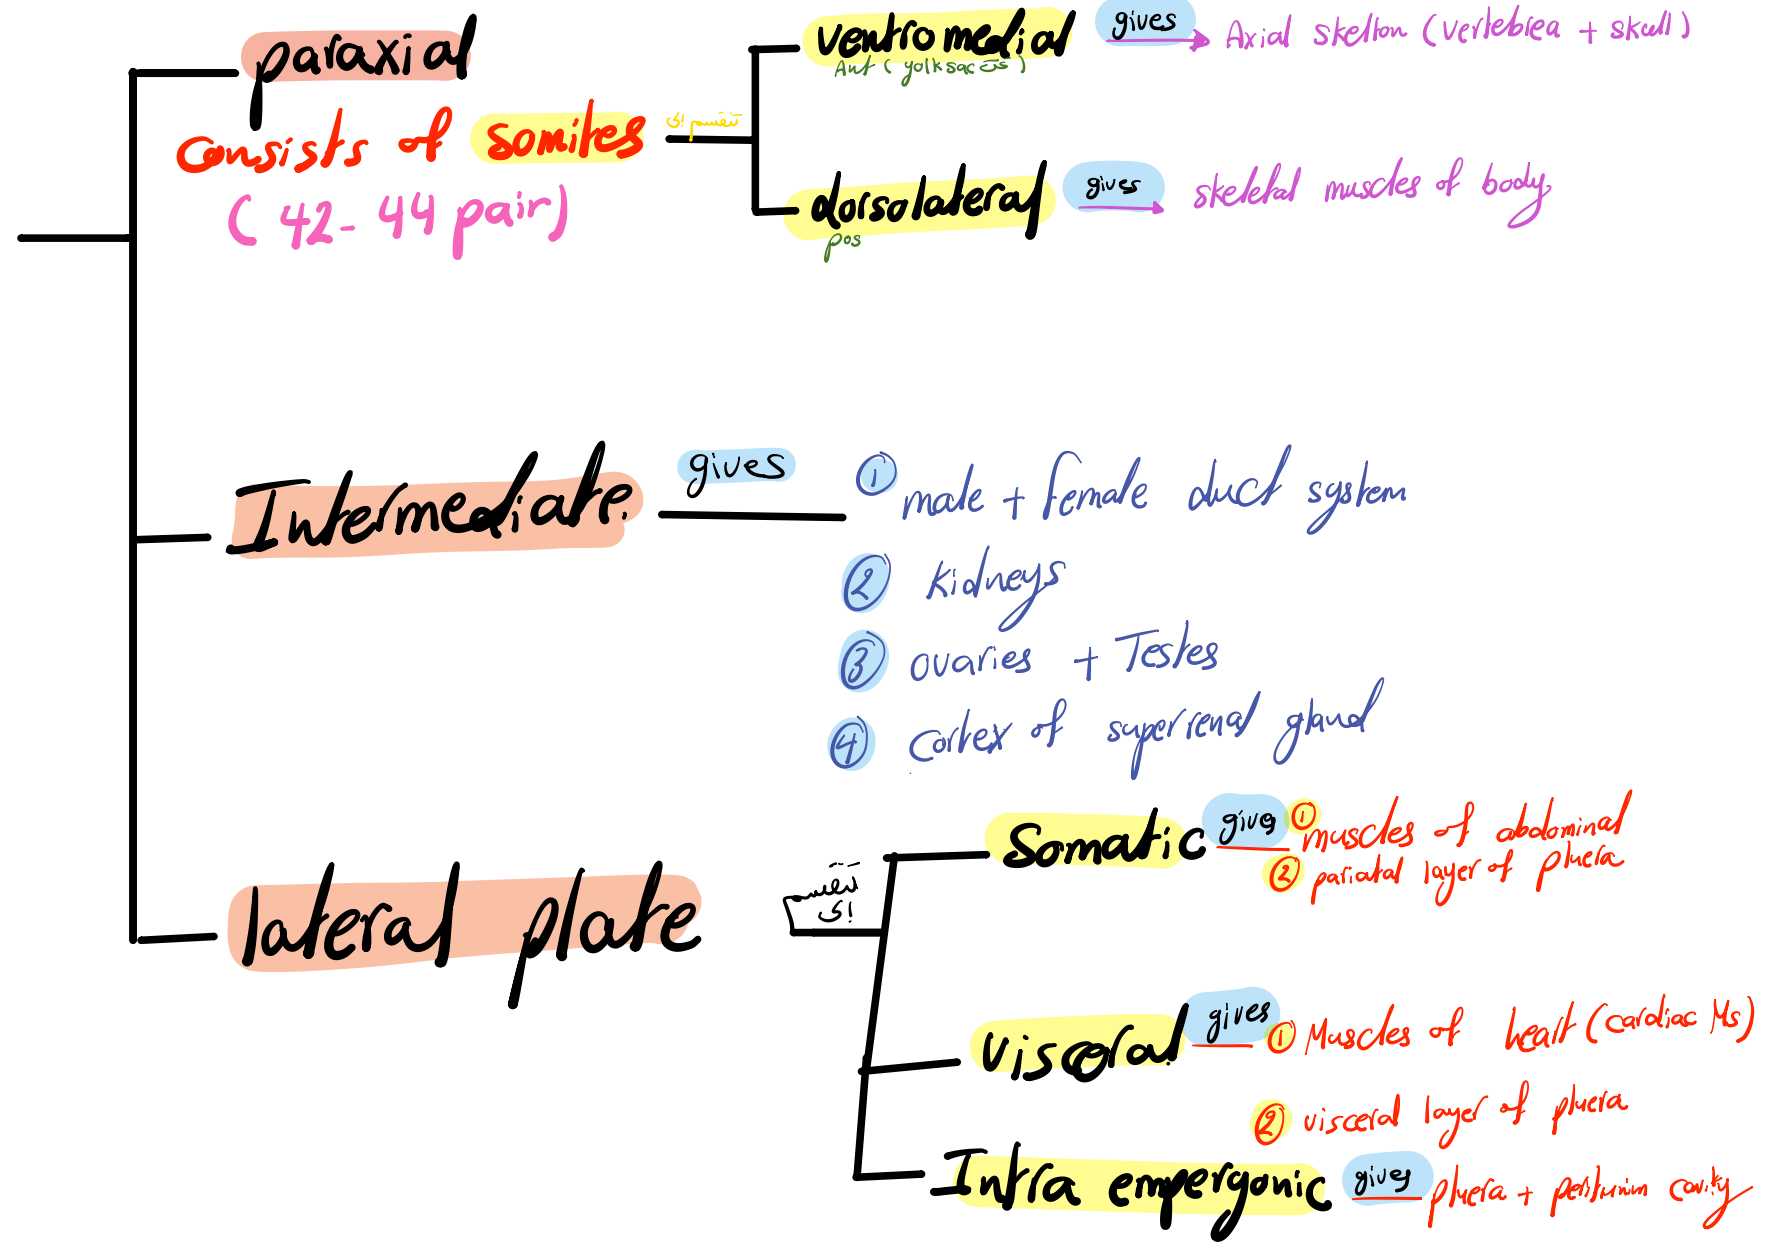 paraxial
consists of somites
(42-44 pair)
تنقسم إلى
ventromedial gives Axial skelton (vertebrea + skull)
Ant (yolksac تحت)
dorsolateral gives skeletal muscles of body
pos
Intermediate. gives
① male + female duct system
② Kidneys
③ ovaries + Testes
④ cortex of superrenal gland
lateral plate
تنقسم
إلى
Somatic gives ① muscles of abdominal
② pariatal layer of pluera
visceral gives ① Muscles of heart (cardiac Ms)
② visceral layer of pluera
Intra empergonic gives pluera + peritunim cavity